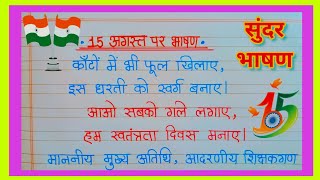 15 अगस्त पर भाषण
सुंदर
भाषण
काँटों में भी फूल खिलाए,
इस धरती को स्वर्ग बनाए।
आओ सबको गले लगाए,
हम स्वतंत्रता दिवस मनाए।
माननीय मुख्य अतिथि, आदरणीय शिक्षकगण
15